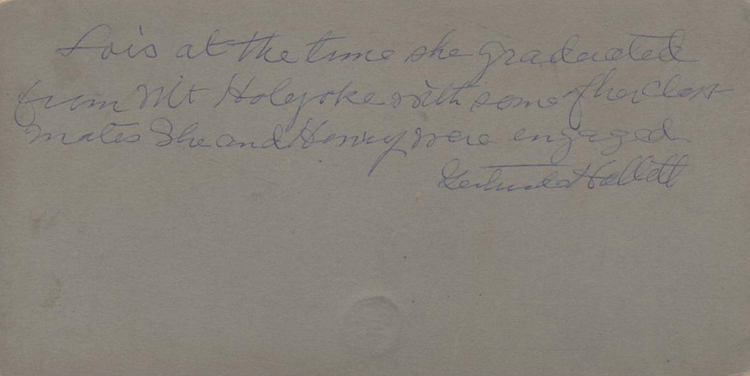 Lois at the time she graduated
from Mt Holyoke with some of her class
mates She and Henry were engaged
Gertrude Hallett